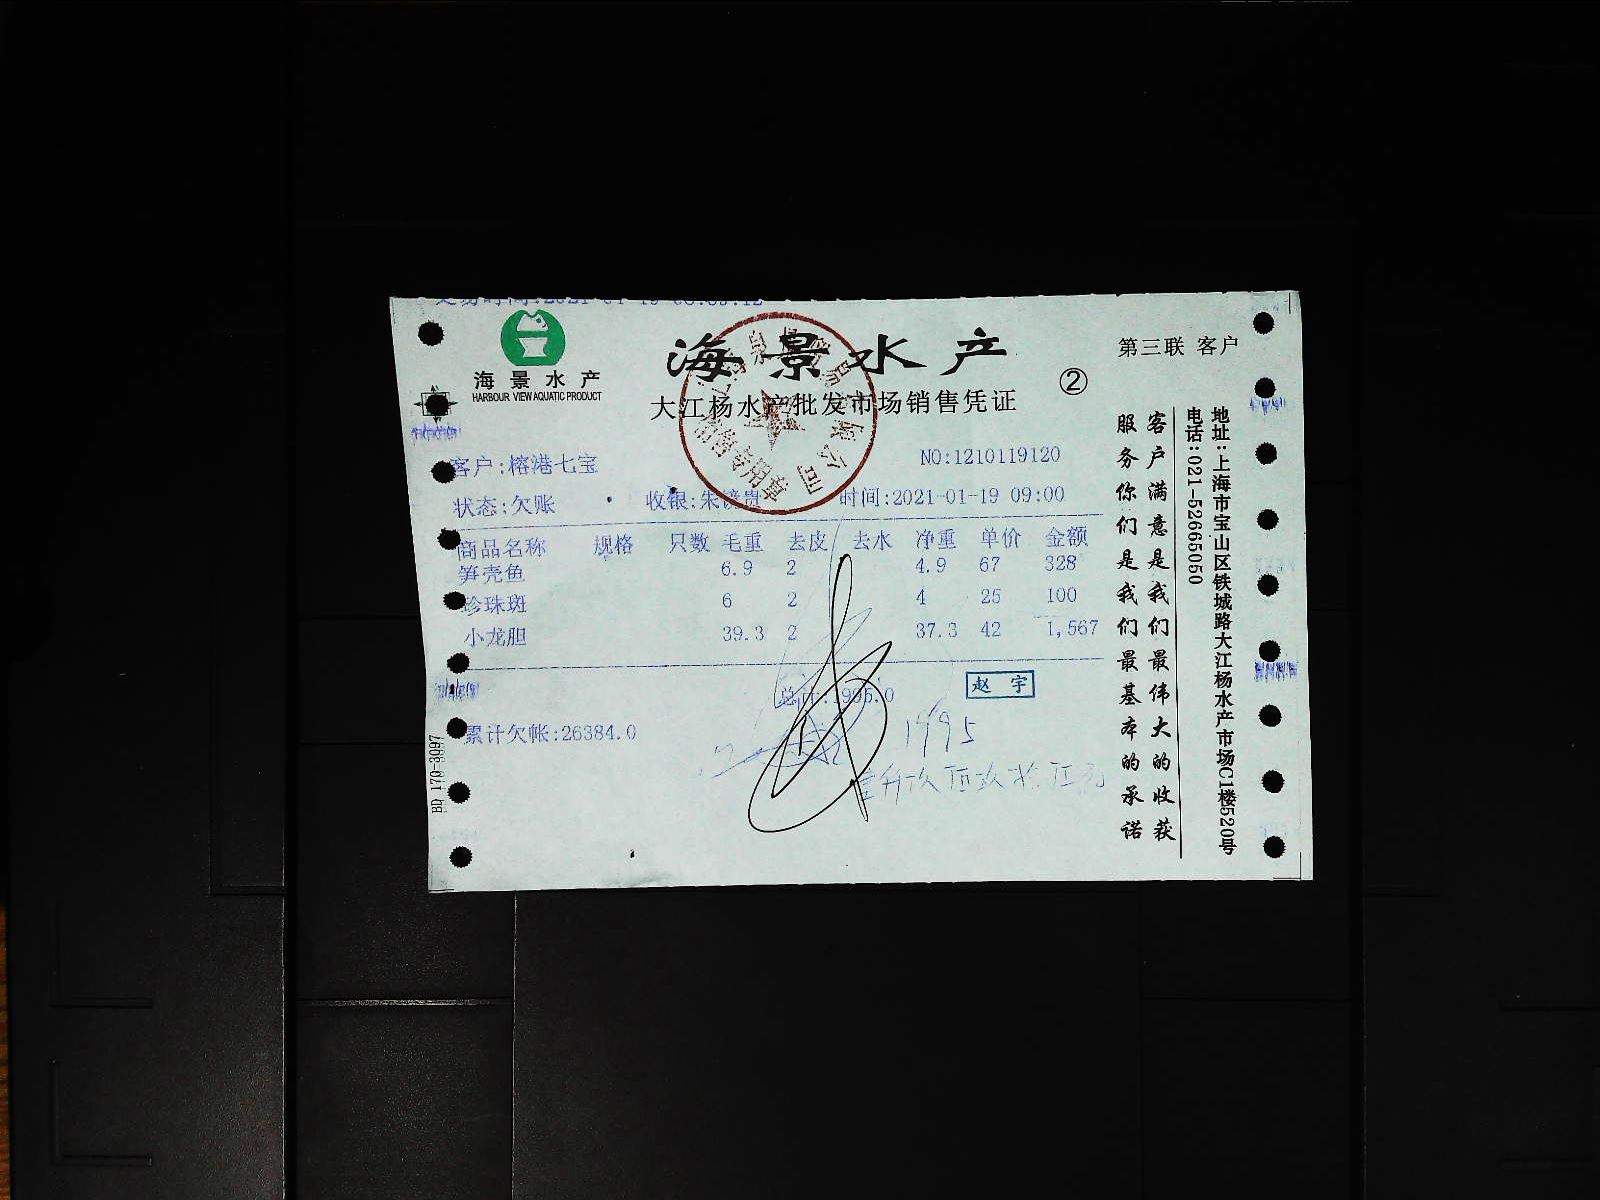 海景水产
HARBOUR VIEW AQUATIC PRODUCT
海景水产
大江杨水产批发市场销售凭证
②
第三联 客户
客户:榕港七宝
NO:1210119120
状态:欠账
收银:朱镜贵
时间:2021-01-19 09:00
商品名称 规格 只数 毛重 去皮 去水 净重 单价 金额
笋壳鱼 6.9 2 4.9 67 328
珍珠斑 6 2 4 25 100
小龙胆 39.3 2 37.3 42 1,567
总计:1995.0
赵宇
累计欠帐:26384.0
1995
销售专用章
BD 170-3097
客户满意是我们最伟大的收获
服务你们是我们最基本的承诺
地址:上海市宝山区铁城路大江杨水产市场C1楼520号
电话:021-52665050